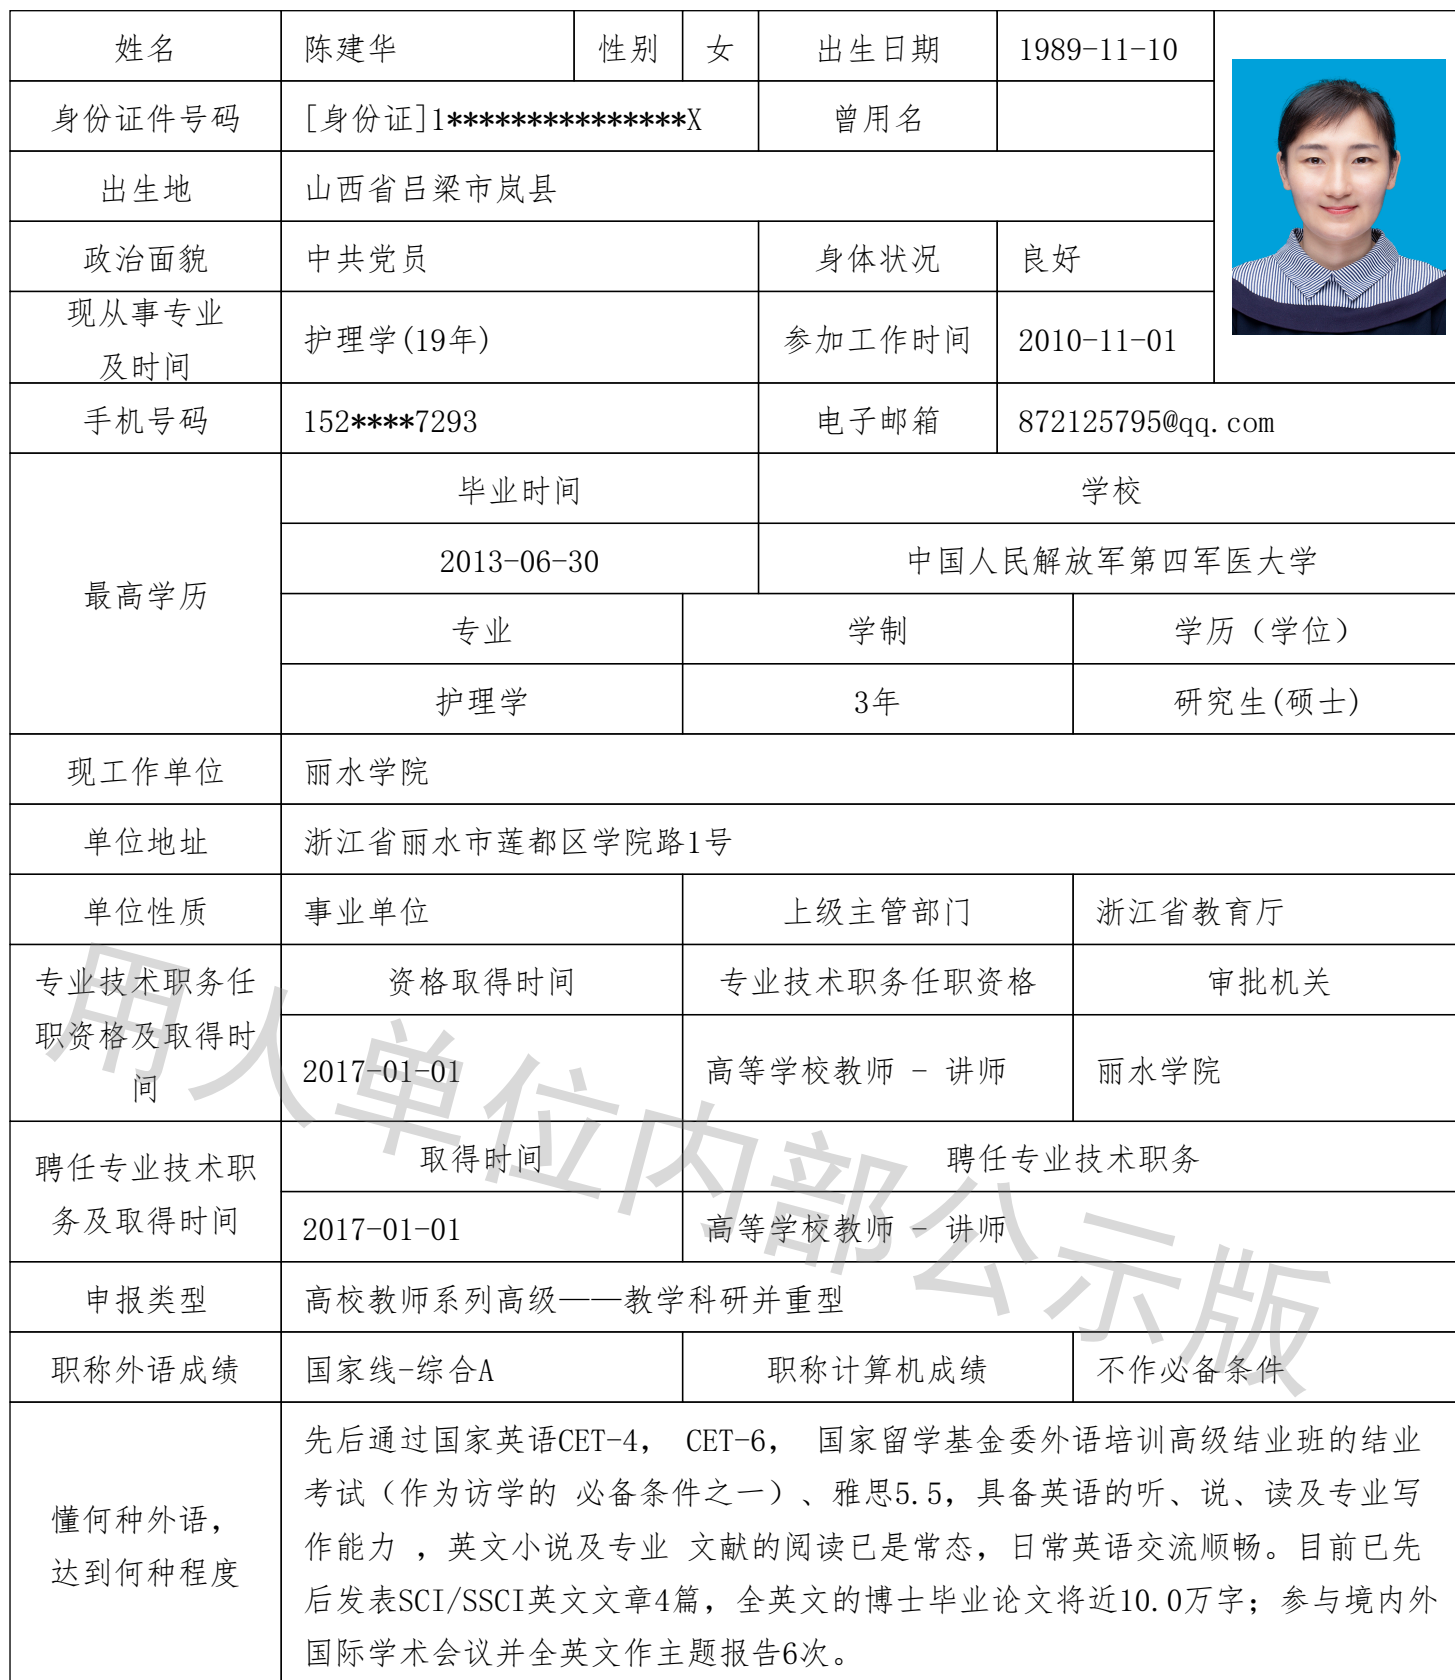 姓名 陈建华 性别 女 出生日期 1989-11-10
身份证件号码 [身份证]1***************X 曾用名
出生地 山西省吕梁市岚县
政治面貌 中共党员 身体状况 良好
现从事专业
及时间 护理学(19年) 参加工作时间 2010-11-01
手机号码 152****7293 电子邮箱 872125795@qq.com
最高学历
毕业时间 学校
2013-06-30 中国人民解放军第四军医大学
专业 学制 学历（学位）
护理学 3年 研究生(硕士)
现工作单位 丽水学院
单位地址 浙江省丽水市莲都区学院路1号
单位性质 事业单位 上级主管部门 浙江省教育厅
专业技术职务任
职资格及取得时
间
资格取得时间 专业技术职务任职资格 审批机关
2017-01-01 高等学校教师 - 讲师 丽水学院
聘任专业技术职
务及取得时间
取得时间 聘任专业技术职务
2017-01-01 高等学校教师 - 讲师
申报类型 高校教师系列高级——教学科研并重型
职称外语成绩 国家线-综合A 职称计算机成绩 不作必备条件
懂何种外语，
达到何种程度
先后通过国家英语CET-4， CET-6， 国家留学基金委外语培训高级结业班的结业
考试（作为访学的 必备条件之一）、雅思5.5，具备英语的听、说、读及专业写
作能力 ，英文小说及专业 文献的阅读已是常态，日常英语交流顺畅。目前已先
后发表SCI/SSCI英文文章4篇，全英文的博士毕业论文将近10.0万字；参与境内外
国际学术会议并全英文作主题报告6次。
用人单位内部公示版